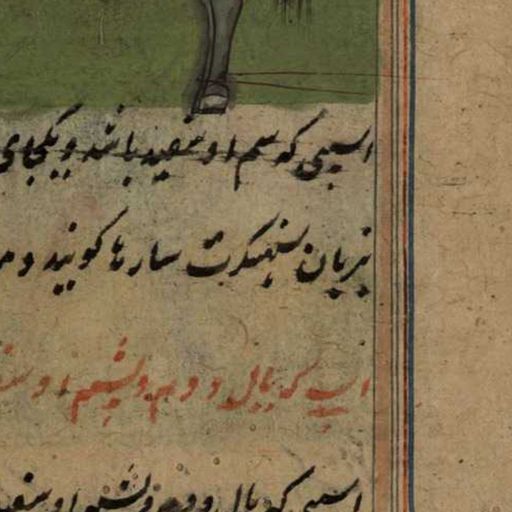 اسپی که سم او سفید باشد و یکجای
بزبان سنهسکرت سارها گویند و
اسپ که یال و دم و پشم او
اسپی که یال و دم و پشم او سفید